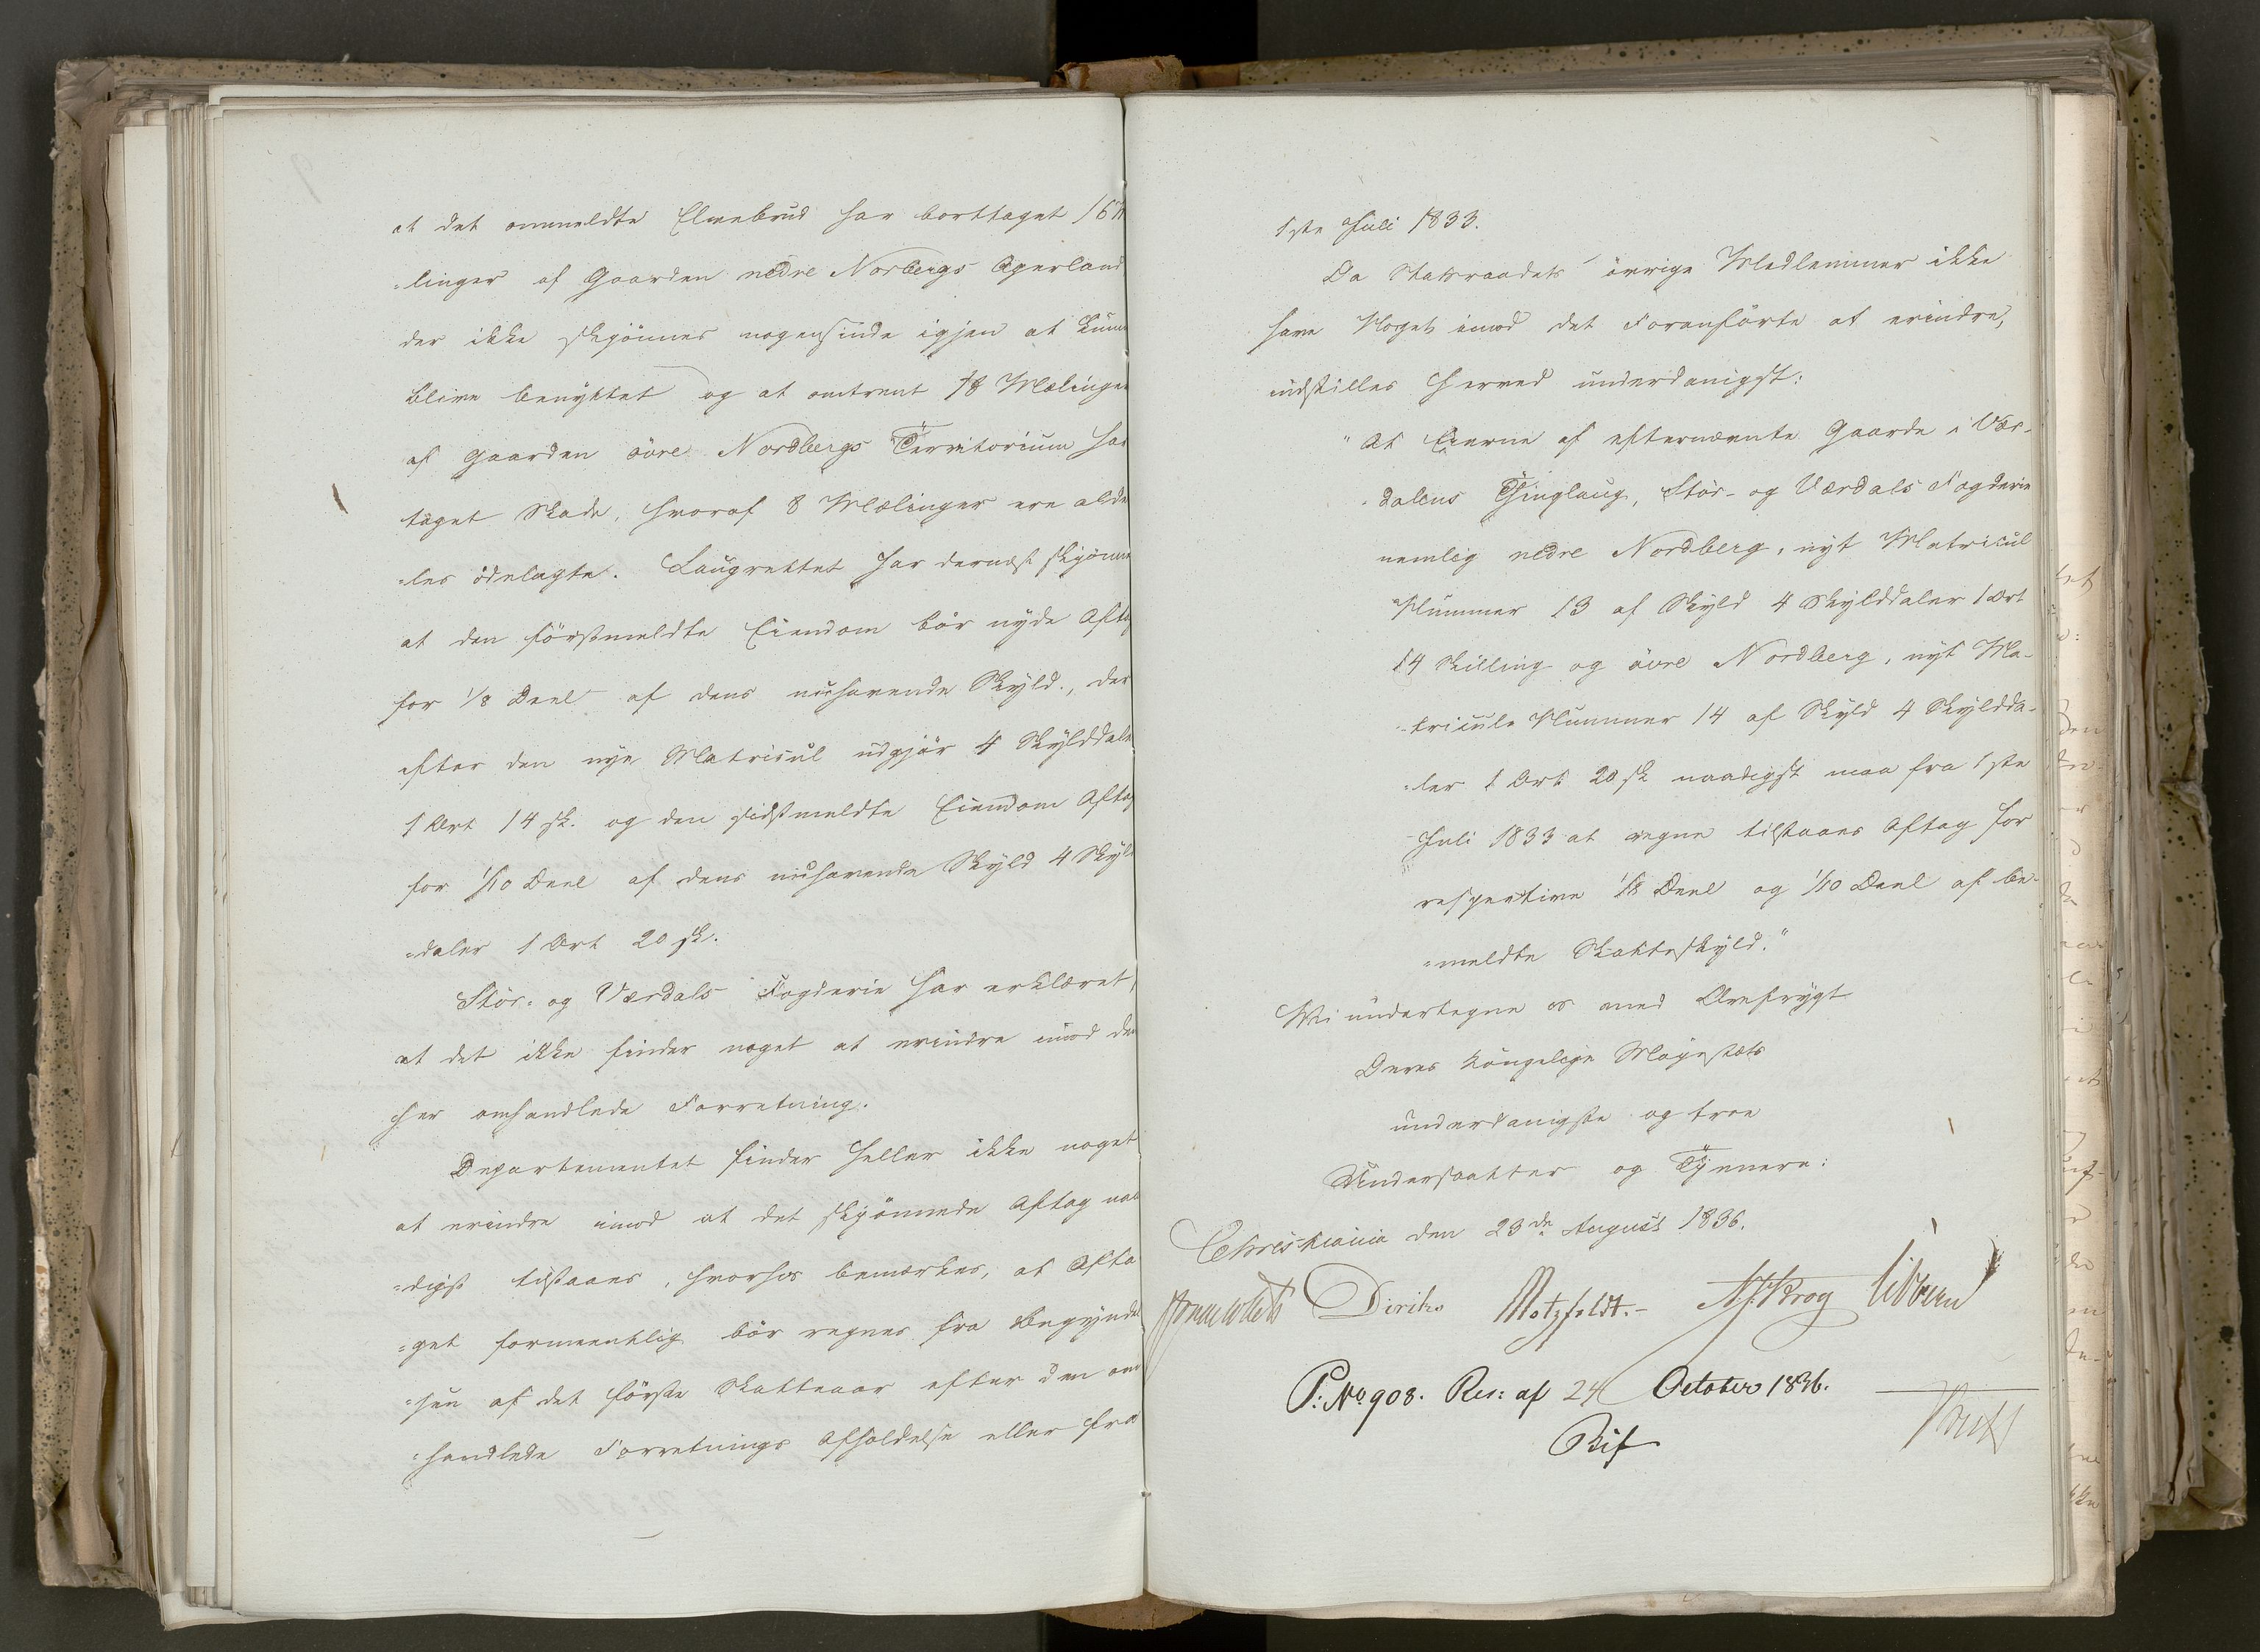 at det ommeldte Elvebrud har borttaget 16 M
-linger af Gaarden nedre Norbergs Agerland
der ikke skjønnes nogensinde igjen at kunn
blive benyttet og at omtrent 18 Mælinger
af Gaarden övre Nordbergs Territorium har
taget Skade, hvoraf 8 Mælinger ere alde
-les ödelagte. Laugrettet har dernæst skjönn
at den förstmeldte Eiendom bör nyde Aftag
for 1/8 Deel af dens nuhavende Skyld, der
efter den nye Matricul udgjör 4 Skylddaler
1 Ort 14 sk. og den sidstmeldte Eiendom Aftag
for 1/10 Deel af dens nuhavende Skyld 4 Skyld
-daler 1 Ort 20 sk.
Stör- og Værdals Fogderie har erklæret,
at det ikke finder noget at erindre imod den
her omhandlede Forretning.
Departementet finder heller ikke noget
at erindre imod at det skjönnede Aftag naa
-digst tilstaaes, hvorhos bemærkes, at Afta
-get formeentlig bör regnes fra Begyndel
-sen af det förste Skatteaar efter den om
-handlede Forretnings Afholdelse eller fra
1ste Juli 1833.
Da Statsraadets övrige Medlemmer ikke
have Noget imod det Foranförte at erindre,
indstilles herved underdanigst:
"At Eierne af efternævnte Gaarde i Vær-
-dalens Thinglaug, Stör- og Værdals Fogderie
nemlig nedre Nordberg, nyt Matricul
Nummer 13 af Skyld 4 Skylddaler 1 Ort
14 Skilling og övre Nordberg, nyt Ma-
-tricule Nummer 14 af Skyld 4 Skyldda-
-ler 1 Ort 20 sk naadigst maa fra 1ste
Juli 1833 at regne tilstaaes Aftag for
respective 1/8 Deel og 1/10 Deel af be-
-meldte Skatteskyld."
Vi undertegne os med Ærefrygt
Deres Kongelige Majestæts
underdanigste og troe
Undersaatter og Tjenere:
Christiania den 23de August 1836.
Diriks Motzfeldt.- N. J. Krog Vibbern
P: No 908. Res: af 24 October 1836.
Bif